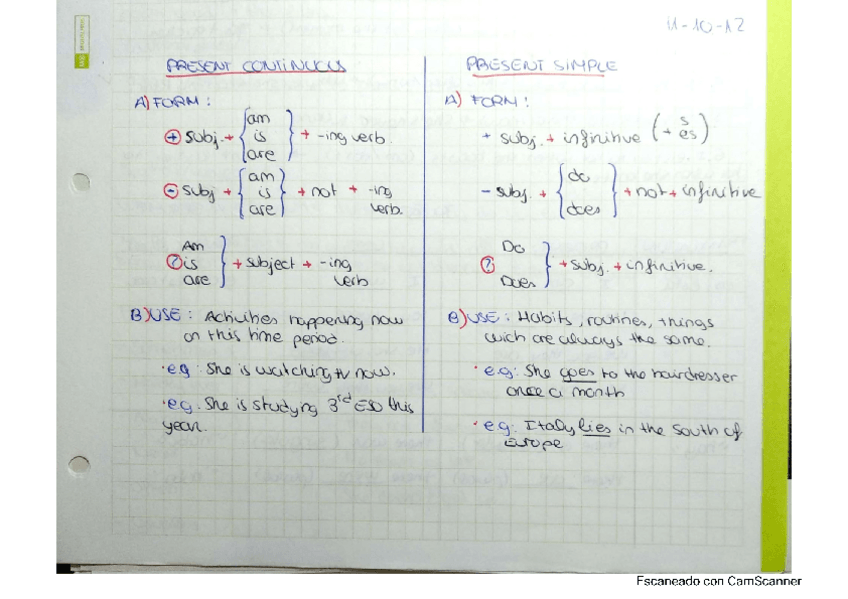 11-10-12
PRESENT CONTINUOUS
A) FORM:
+ subj. + { am is are } + -ing verb.
- subj + { am is are } + not + -ing verb.
? Am is are } + subject + -ing verb
B) USE: Activities happening now
or this time period.
·e.g: She is watching tv now.
·e.g: She is studying 3rd ESO this
year.
PRESENT SIMPLE
A) FORM:
+ subj. + infinitive (+ s es)
- subj. + { do does } + not + infinitive
? Do Does } + subj. + infinitive.
B) USE: Habits, routines, things
wich are always the same.
·e.g: She goes to the hairdresser
once a month
·e.g: Italy lies in the South of
Europe
Escaneado con CamScanner